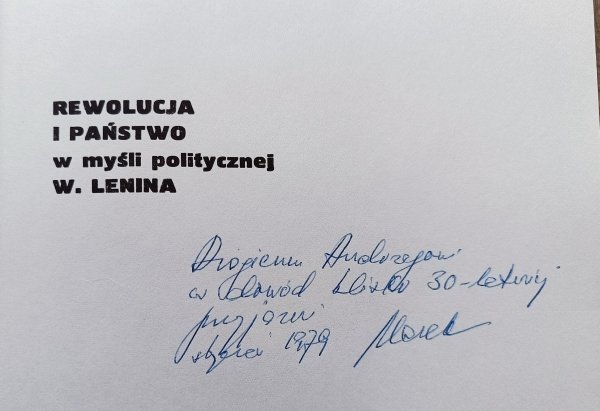 REWOLUCJA
I PAŃSTWO
w myśli politycznej
W. LENINA
Drogiemu Andrzejowi
w dowód blisko 30-letniej
przyjaźni
styczeń 1979 Marek